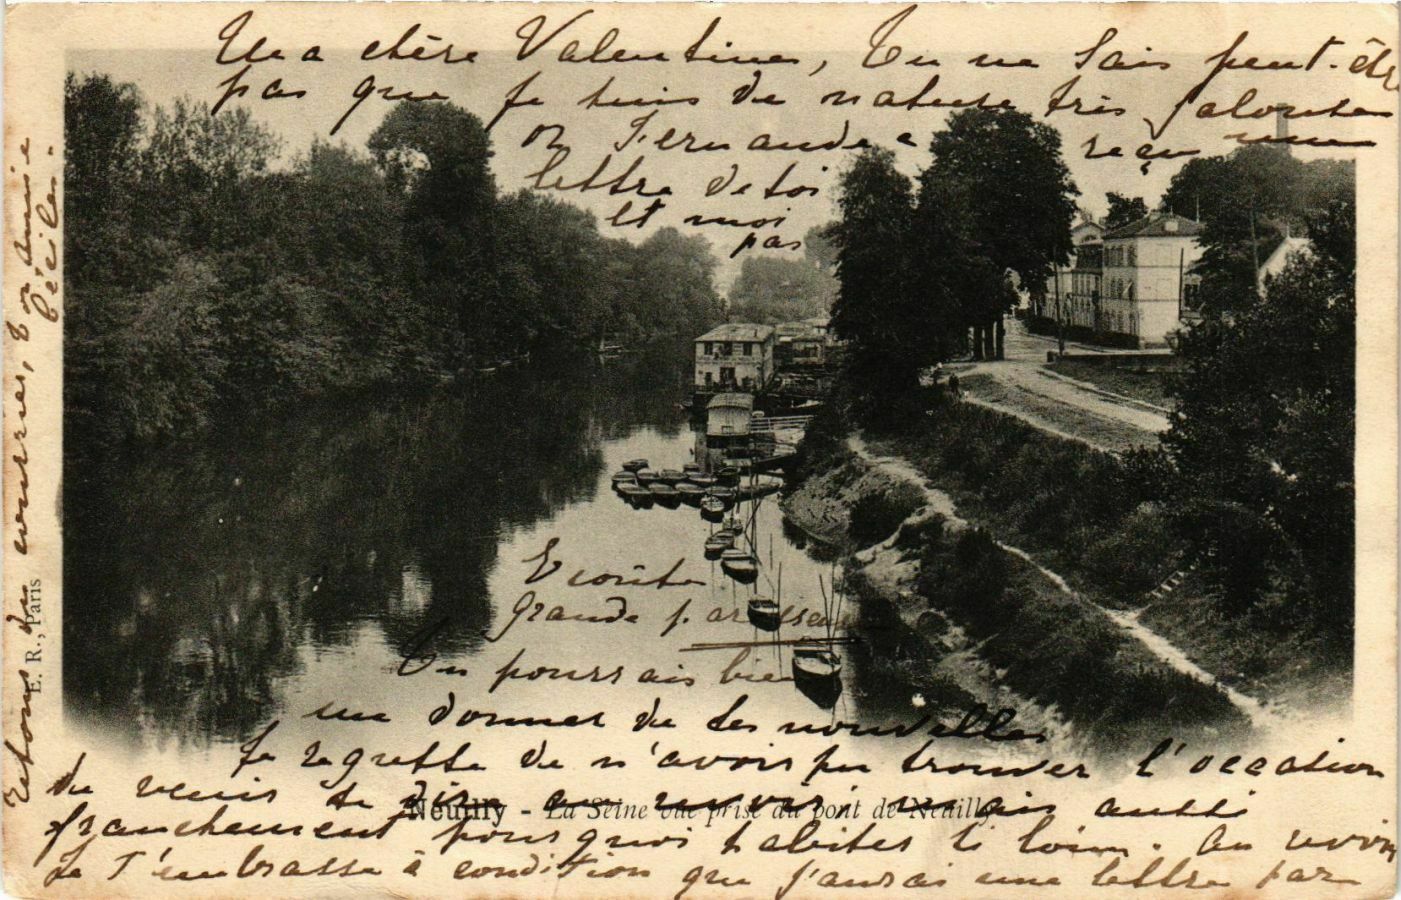 Ma chère Valentine, Tu ne sais peut-être
pas que je suis de nature très jalouse
or Fernande a reçu une
lettre de toi
et moi
pas
Ecoute
grande paresseuse
Tu pourrais bien
me donner de tes nouvelles
Je regrette de n'avoir pu trouver l'occasion
de venir te dire au revoir mais aussi
franchement pourquoi habites ti loin. Au revoir
Je t'embrasse à condition que j'aurai une lettre par
retour du courrier, Ton amie
Cécile.
Neuilly - La Seine vue prise du pont de Neuilly
E. R., Paris